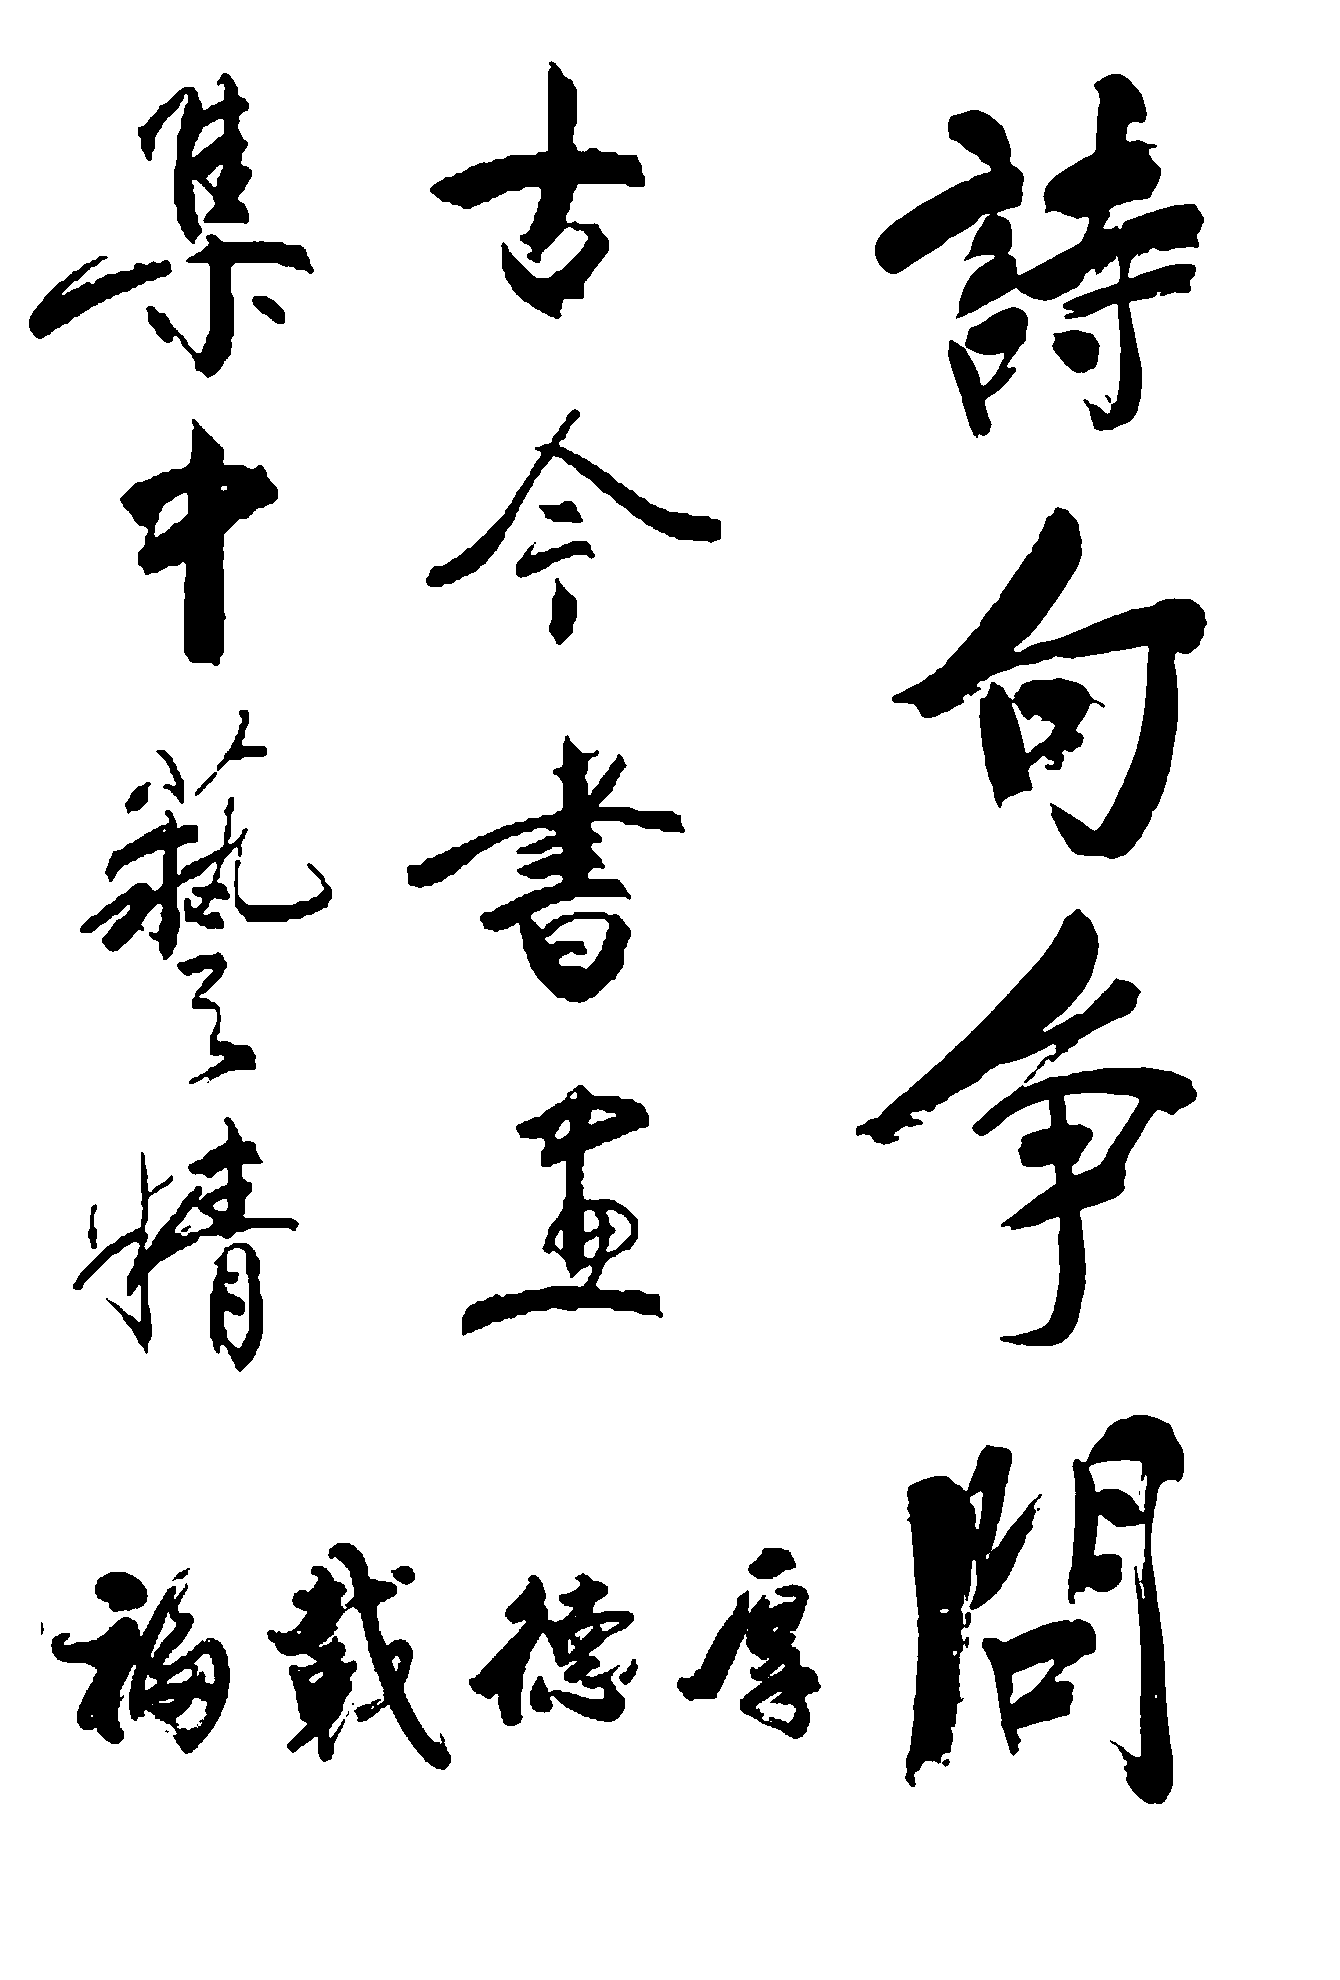 詩句争問
古今書画
集中藝精
厚德載福